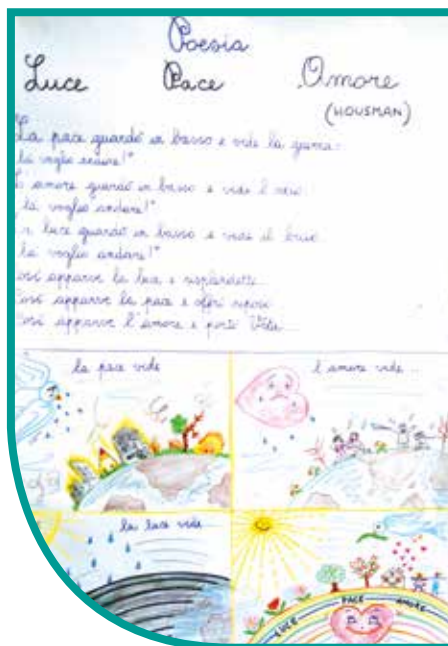 Poesia
Luce Pace Omore
(HOUSMAN)
La pace guardò in basso e vide la guerra:
là voglio andare!"
L'amore guardò in basso e vide l'odio:
là voglio andare!"
La luce guardò in basso e vide il buio:
là voglio andare!"
Così apparve la luce e risplendette.
Così apparve la pace e offrì riposo.
Così apparve l'amore e portò Vita...
la pace vide
l'amore vide...
la luce vide
LUCE PACE AMORE